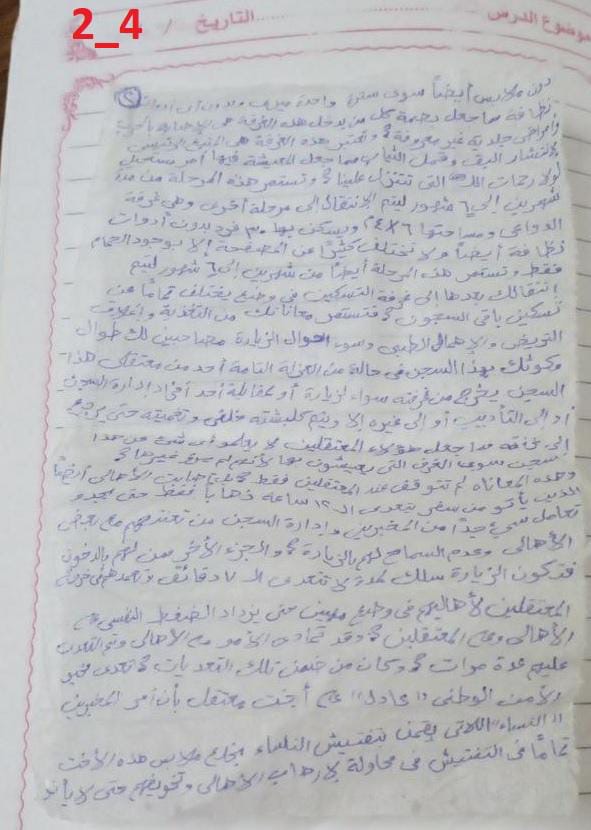 2_4
موضوع الدرس
التاريخ /
ملابس أيضاً سوى سترة واحدة وبدون أى أدوات
نظافة مما جعل كل من يدخل هذه الغرفة بأمراض
وأمراض جلدية غير معروفة وتعتبر هذه الغرفة هى الرئيسى
لإنتشار البق وقمل الثياب مما جعل المعيشة فيها أمر مستحيل
لولا رحمات الله التى تتنزل علينا وتستمر هذه المرحلة من مدة
شهرين إلى ٦ شهور ليتم الإنتقال إلى مرحلة أخرى وهى غرفة
الدواعى ومساحتها ٦×٤ م ويسكن بها ٣٠ فرد بدون أدوات
نظافة أيضاً ولا تختلف كثيراً عن المصفحة إلا بوجود الحمام
فقط وتستمر هذه المرحلة أيضاً من شهرين إلى ٦ شهور ليتم
إنتقالك بعدها إلى غرفة التسكين فى وضع يختلف تماماً عن
تسكين باقى السجون فتستمر معاناتك من التغذية وإغلاق
التريض والإهمال الطبى وسوء أحوال الزيارة مصاحبين لك طوال
وكونك بهذا السجن فى حالة من العزلة التامة أحد من معتقلى هذا
السجن يخرج من غرفته سواء لزيارة أو لمقابلة أحد أفراد إدارة السجن
أو إلى التأديب أو إلى غيره إلا ويتم كلبشته خلفى وتغميته حتى يرجع
إلى غرفته مما جعل هؤلاء المعتقلين لا يعلمو أى شئ عن هذا
السجن سوى الغرف التى يعيشون بها لأنهم لم يرو غيرها
وهذه المعاناه لم تتوقف عند المعتقلين فقط الأهالى أيضاً
الذين يأتو من سفر يتعدى الـ ١٢ ساعه ذهاباً فقط حتى يجدو
تعامل سئ جداً من المخبرين وإدارة السجن من تعنتهم مع بعض
الأهالى وعدم السماح لهم بالزيارة والجزء الأخر ممن لهم بالدخول
فتكون الزيارة سلك لمدة لا تتعدى الـ ٧ دقائق
المعتقلين لأهاليهم فى وضع مهين حتى يزداد الضغط النفسى على
الأهالى وعلى المعتقلين وقد تمادى الأمر مع الأهالى وتم التعدى
عليهم عدة مرات وكان من ضمن تلك التعديات تعدى مخبر
الأمن الوطنى "عادل" على أخت معتقل بأن أمر المخبرين
"النساء" اللاتى يقمن بتفتيش النساء بخلع ملابس هذه الأخت
تماماً فى التفتيش فى محاولة لإرهاب الأهالى وتخويفهم حتى لا يأتو